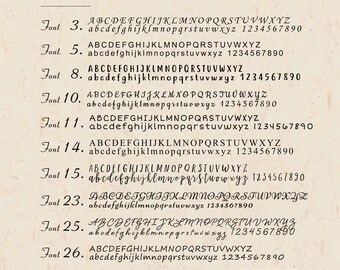 Font 3. ABCDEFGHIJKLMNOPQRSTUVWXYZ
abcdefghijklmnopqrstuvwxyz 1234567890
Font 5. ABCDEFGHIJKLMNOPQRSTUVWXYZ
abcdefghijklmnopqrstuvwxyz 1234567890
Font 8. ABCDEFGHIJKLMNOPQRSTUVWXYZ
abcdefghijklmnopqrstuvwxyz 1234567890
Font 10. ABCDEFGHIJKLMNOPQRSTUVWXYZ
abcdefghijklmnopqrstuvwxyz 1234567890
Font 11. ABCDEFGHIJKLMNOPQRSTUVWXYZ
abcdefghijklmnopqrstuvwxyz 1234567890
Font 14. ABCDEFGHIJKLMNOPQRSTUVWXYZ
abcdefghijklmnopqrstuvwxyz 1234567890
Font 15. ABCDEFGHIJKLMNOPQRSTUVWXYZ
abcdefghijklmnopqrstuvwxyz 1234567890
Font 23. ABCDEFGHIJKLMNOPQRSTUVWXYZ
abcdefghijklmnopqrstuvwxyz 1234567890
Font 25. ABCDEFGHIJKLMNOPQRSTUVWXYZ
abcdefghijklmnopqrstuvwxyz 1234567890
Font 26. ABCDEFGHIJKLMNOPQRSTUVWXYZ
abcdefghijklmnopqrstuvwxyz 1234567890